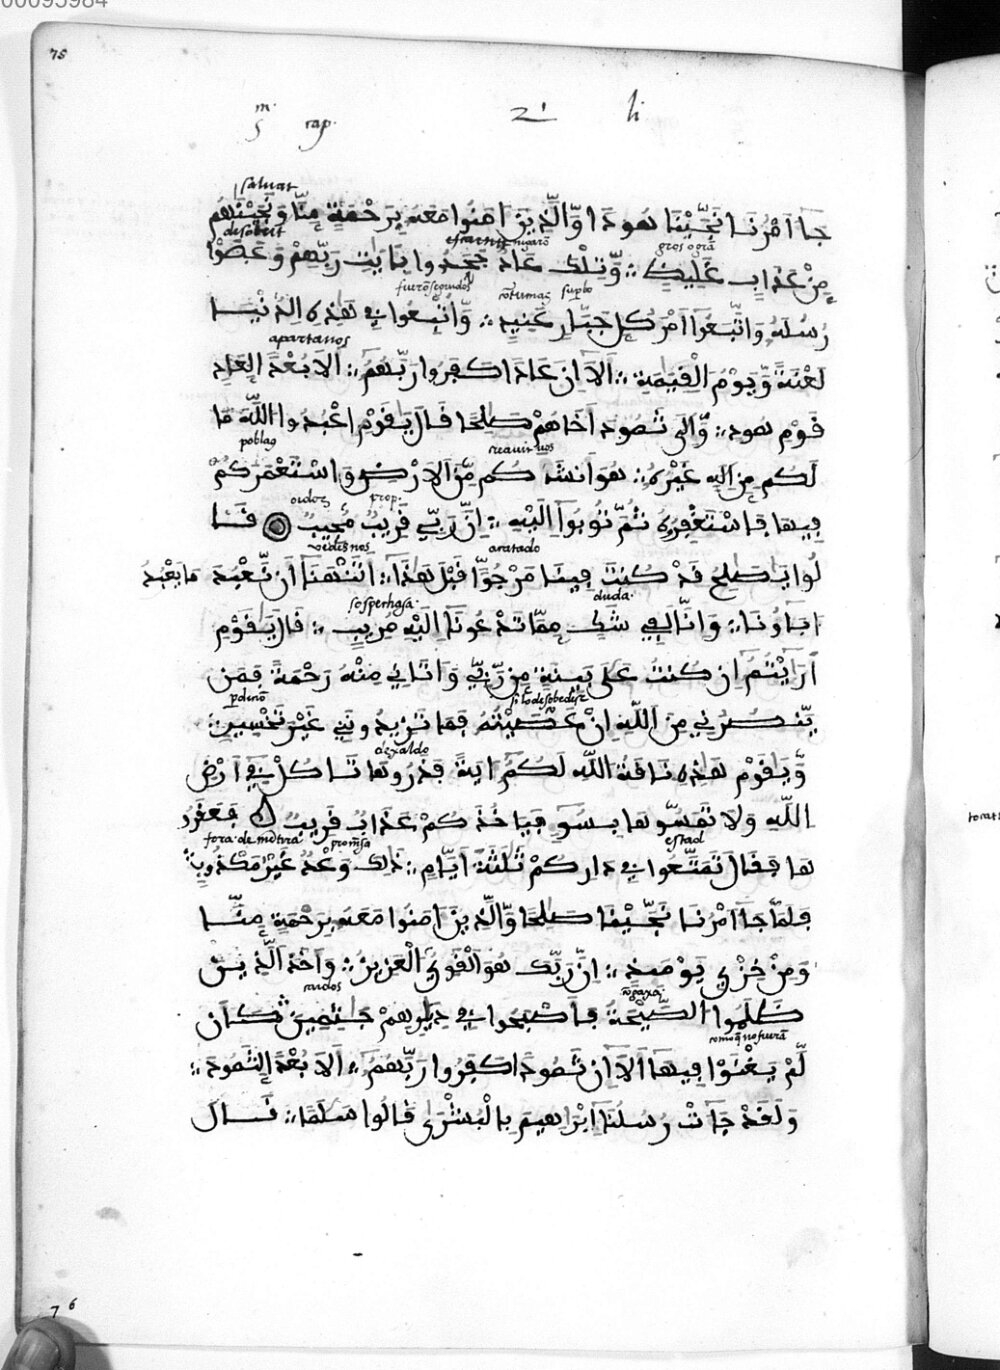 00095984
75
m. S rap. 2 li
saluar
جَا اَمْرُنَا نَجَّيْنَا هُودًا وَّالَّذِينَ اٰمَنُوا مَعَهُ بِرَحْمَةٍ مِنَّا وَنَجَّيْنٰهُم
desobert escarnir negarō gros ogrā
مِنْ عَذَابٍ غَلِيظٍ وَّتِلْكَ عَادٌ جَحَدُوا بِـَٔايَٰتِ رَبِّهِمْ وَعَصَوْا
fuerō segudos cōtumaç supbo
رُسُلَهُ وَاتَّبَعُوا اَمْرَ كُلِّ جَبَّارٍ عَنِيدٍ وَّاُتْبِعُوا فِي هٰذِهِ الدُّنْيَا
apartanos
لَعْنَةً وَّيَوْمَ الْقِيٰمَةِ اَلَا اِنَّ عَادًا كَفَرُوا رَبَّهُمُ اَلَا بُعْدًا لِعَادٍ
قَوْمِ هُودٍ وَّاِلَى ثَمُودَ اَخَاهُمْ صٰلِحًا قَالَ يٰقَوْمِ اعْبُدُوا اللّٰهَ مَا
poblaç creauit uos
لَكُم مِنْ اِلٰهٍ غَيْرُهُ هُوَ اَنْشَاَ كُم مِّنَ الْاَرْضِ وَاسْتَعْمَرَكُمْ
oidor prop.
فِيهَا فَاسْتَغْفِرُوهُ ثُمَّ تُوبُوا اِلَيْهِ اِنَّ رَبِّي قَرِيبٌ مُجِيبٌ قَـا
vedesnos aratado
لُوا يٰصٰلِحُ قَدْ كُنْتَ فِينَا مَرْجُوًّا قَبْلَ هٰذَا اَتَنْهٰنَا اَن نَّعْبُدَ مَا يَعْبُدُ
sospechosa duda.
اٰبَاؤُنَا وَاِنَّا لَفِي شَكٍّ مِمَّا تَدْعُونَا اِلَيْهِ مُرِيبٍ قَالَ يٰقَوْمِ
اَرَاَيْتُمُ اِن كُنْتُ عَلَى بَيِّنَةٍ مِن رَّبِّي وَاٰتٰانِي مِنْهُ رَحْمَةً فَمَن
pdeciō si lo desobedesc
يَّنْصُرُنِي مِنَ اللّٰهِ اِنْ عَصَيْتُهُ فَمَا تَزِيدُونَنِي غَيْرَ تَخْسِيرٍ
dexaldo
وَّيٰقَوْمِ هٰذِهِ نَاقَةُ اللّٰهِ لَكُمُ اٰيَةً فَذَرُوهَا تَاكُلْ فِي اَرْضِ
اللّٰهِ وَلَا تَمَسُّوهَا بِسُوءٍ فَيَاخُذَكُمْ عَذَابٌ قَرِيبٌ فَعَقَرُو
fora de mētira promesa estad
هَا فَقَالَ تَمَتَّعُوا فِي دَارِكُمْ ثَلٰثَةَ اَيَّامٍ ذٰلِكَ وَعْدٌ غَيْرُ مَكْذُوبٍ
فَلَمَّا جَا اَمْرُنَا نَجَّيْنَا صٰلِحًا وَّالَّذِينَ اٰمَنُوا مَعَهُ بِرَحْمَةٍ مِنَّـا
وَمِنْ خِزْيِ يَوْمَئِذٍ اِنَّ رَبَّكَ هُوَ الْقَوِيُّ الْعَزِيزُ وَاَخَذَ الَّذِينَ
caidos
ظَلَمُوا الصَّيْحَةُ فَاَصْبَحُوا فِي دِيٰرِهِمْ جٰثِمِينَ كَـاَن
como q no fuerā
لَّمْ يَغْنَوْا فِيهَا اَلَا اِنَّ ثَمُودًا كَفَرُوا رَبَّهُمُ اَلَا بُعْدًا لِثَمُودَ
وَلَقَدْ جَاتْ رُسُلُنَا اِبْرٰهِيمَ بِالْبُشْرٰى قَالُوا سَلٰمًا قَـالَ
76